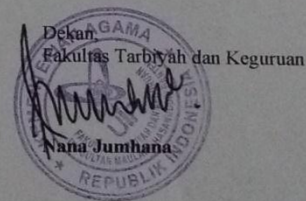 Dekan,
Fakultas Tarbiyah dan Keguruan
AGAMA
Nana Jumhana
REPUBLIK INDONESIA